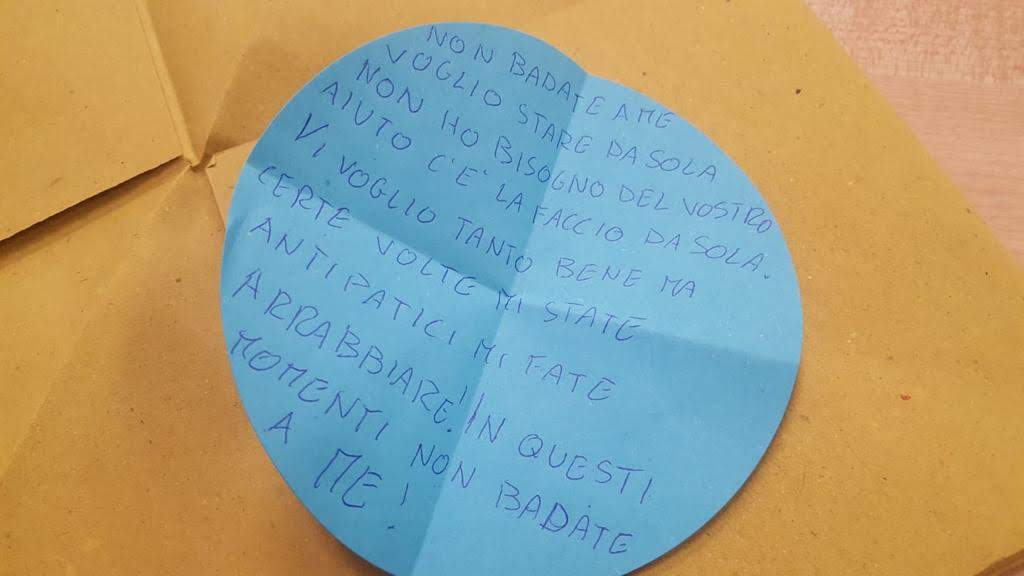 NON BADATE A ME
VOGLIO STARE DA SOLA
NON HO BISOGNO DEL VOSTRO
AIUTO C'È LA FACCIO DA SOLA.
VI VOGLIO TANTO BENE MA
CERTE VOLTE MI STATE
ANTIPATICI MI FATE
ARRABBIARE! IN QUESTI
MOMENTI NON BADATE
A ME!